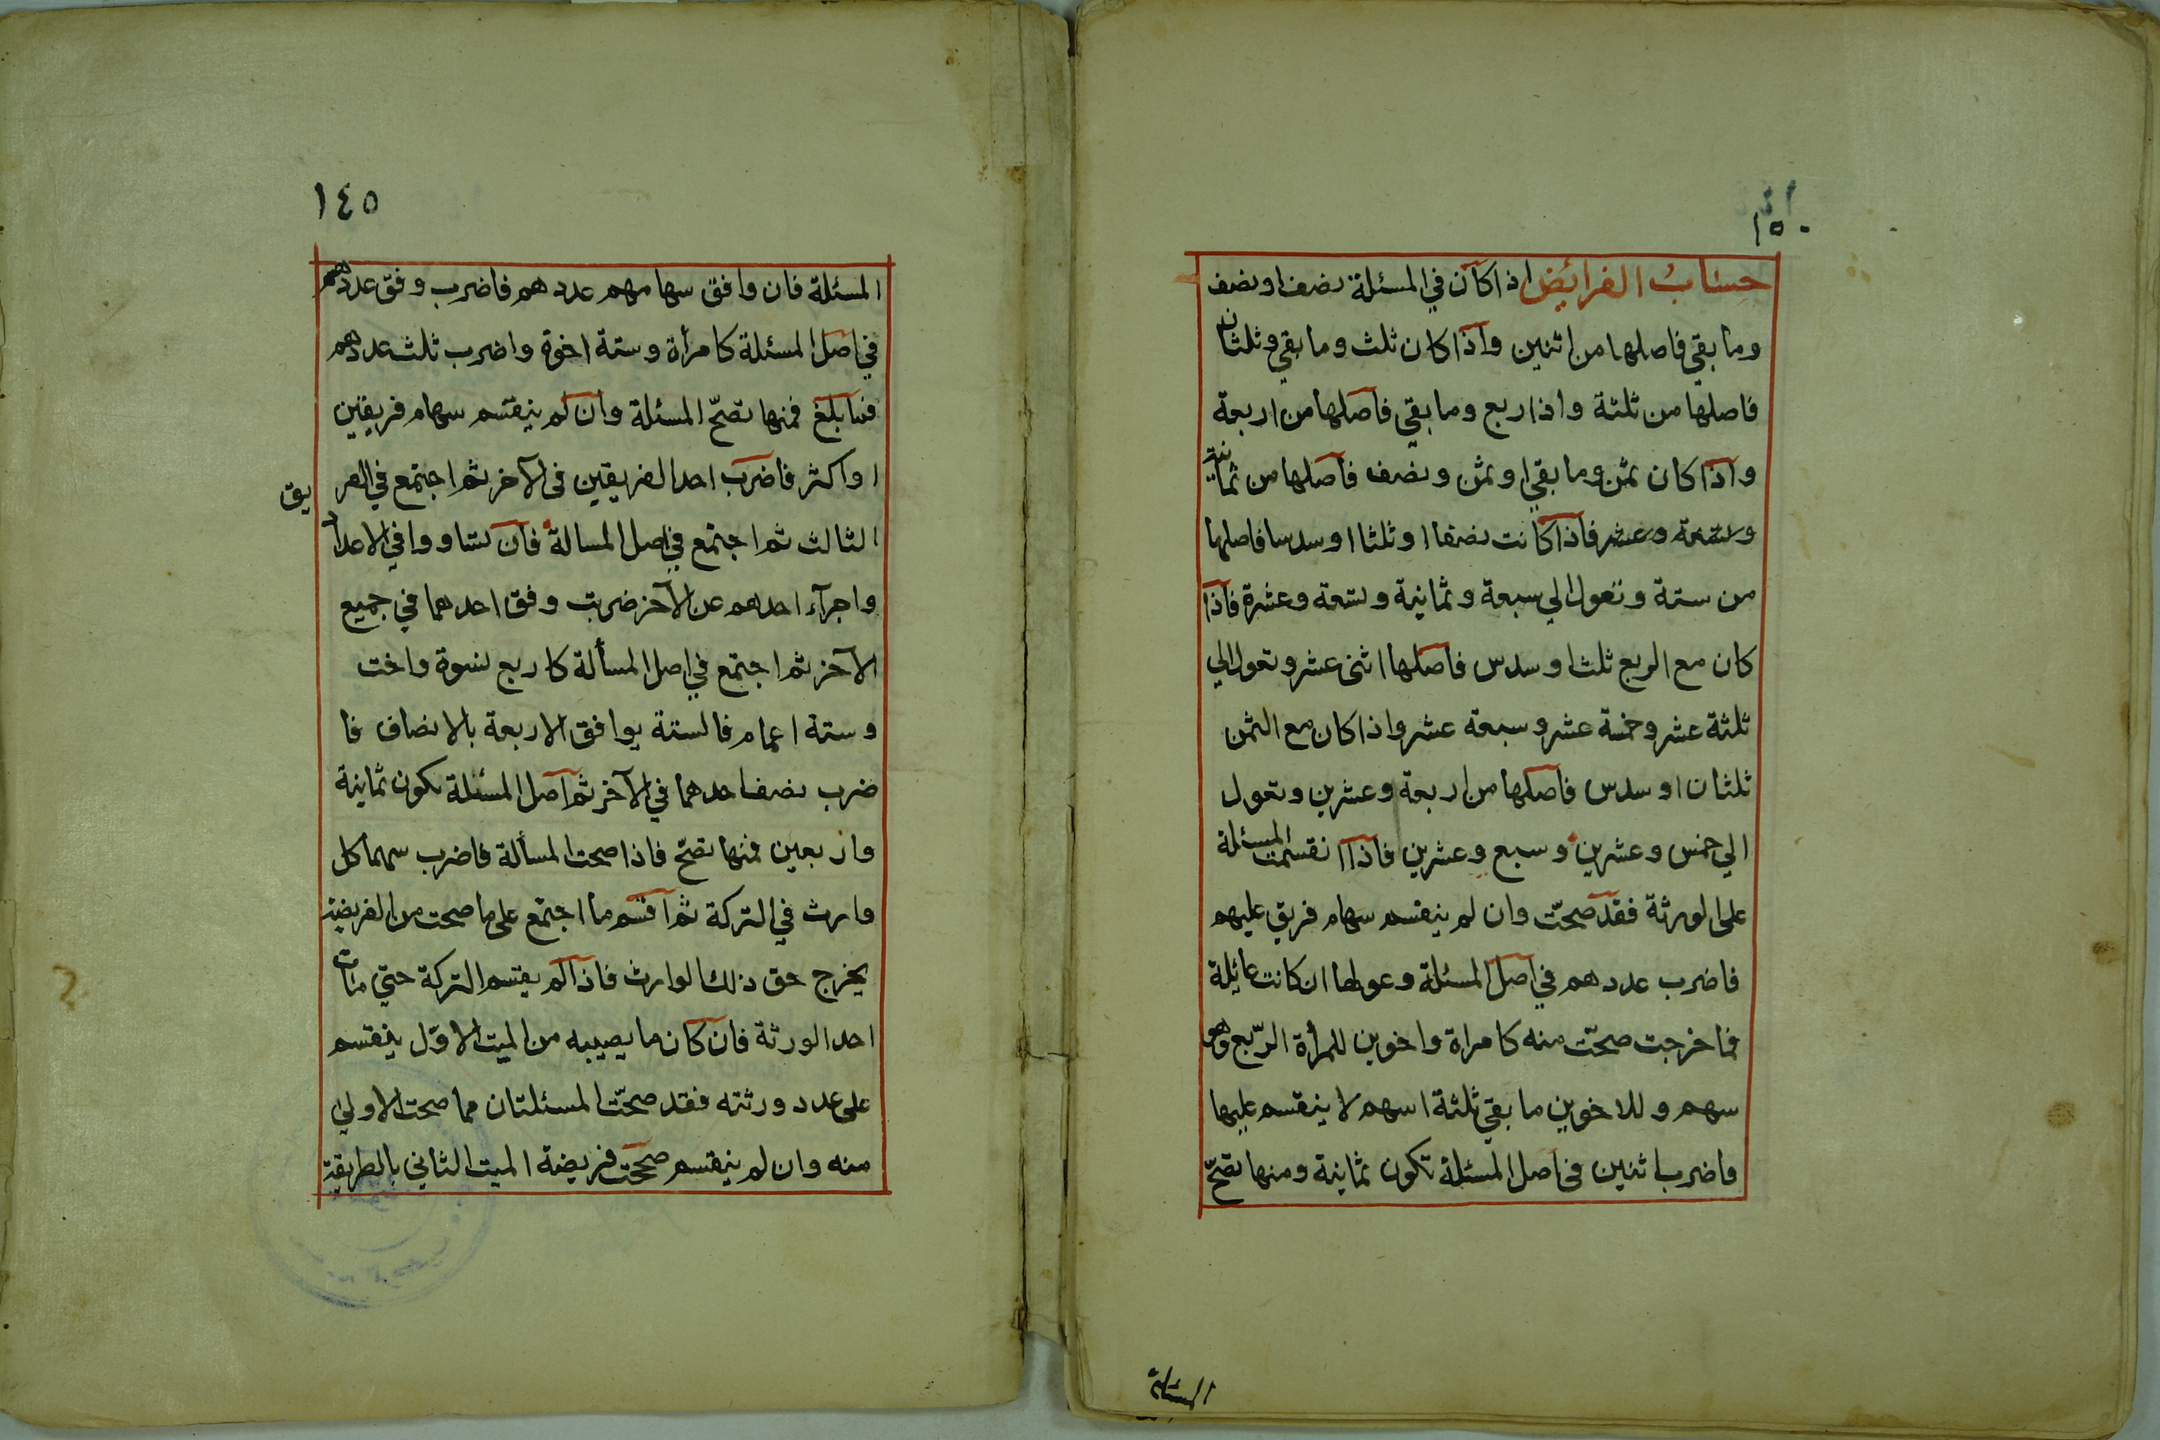 ١٥٠
حساب الفرائض اذا كان في المسئلة نصف او نصف
وما بقي فاصلها من اثنين واذا كان ثلث وما بقي وثلثان
فاصلها من ثلثة واذا ربع وما بقي فاصلها من اربعة
واذا كان ثمن وما بقي او ثمن ونصف فاصلها من ثمانية
وتسعة وعشر فاذا كانت نصفا او ثلثا او سدسا فاصلها
من ستة وتعول الي سبعة وثمانية وتسعة وعشرة فاذا
كان مع الربع ثلث او سدس فاصلها اثنى عشر وتعول الي
ثلثة عشر وخمسة عشر وسبعة عشر واذا كان مع الثمن
ثلثان او سدس فاصلها من اربعة وعشرين وتعول
الي خمس وعشرين وسبع وعشرين فاذا انقسمت المسئلة
على الورثة فقد صحّت وان لم ينقسم سهام فريق عليهم
فاضرب عددهم في اصل المسئلة وعولها ان كانت عائلة
فما خرجت صحّت منه كامراة واخوين للمرأة الرّبع وهو
سهم وللاخوين ما بقي ثلثة اسهم لا ينقسم عليها
فاضرب اثنين في اصل المسئلة تكون ثمانية ومنها تصحّ
المسئلة
١٤٥
المسئلة فان وافق سهامهم عددهم فاضرب وفق عددهم
في اصل المسئلة كامرأة وستة اخوة واضرب ثلث عددهم
فما بلغ فمنها تصحّ المسئلة وان لم ينقسم سهام فريقين
او اكثر فاضرب احد الفريقين في الآخر ثم اجتمع في الفريق
الثالث ثم اجتمع في اصل المسالة فان تساووا في الاعدا
واجرآء احدهم عن الآخر ضربت وفق احدهما في جميع
الآخر ثم اجتمع في اصل المسألة كاربع نسوة واخت
وستة اعمام فالستة يوافق الاربعة بالانصاف فا
ضرب نصف احدهما في الآخر ثم اصل المسئلة تكون ثمانية
واربعين فمنها تصحّ فاذا صحت المسألة فاضرب سهما كل
وارث في التركة ثم اقسم ما اجتمع على ما صحت من الفريضة
يخرج حق ذلك الوارث فاذا لم يقسم التركة حتي مات
احد الورثة فان كان ما يصيبه من الميت الاوّل ينقسم
على عدد ورثته فقد صحّت المسئلتان مما صحت الاولي
منه وان لم ينقسم صحّت فريضة الميت الثاني بالطريقة